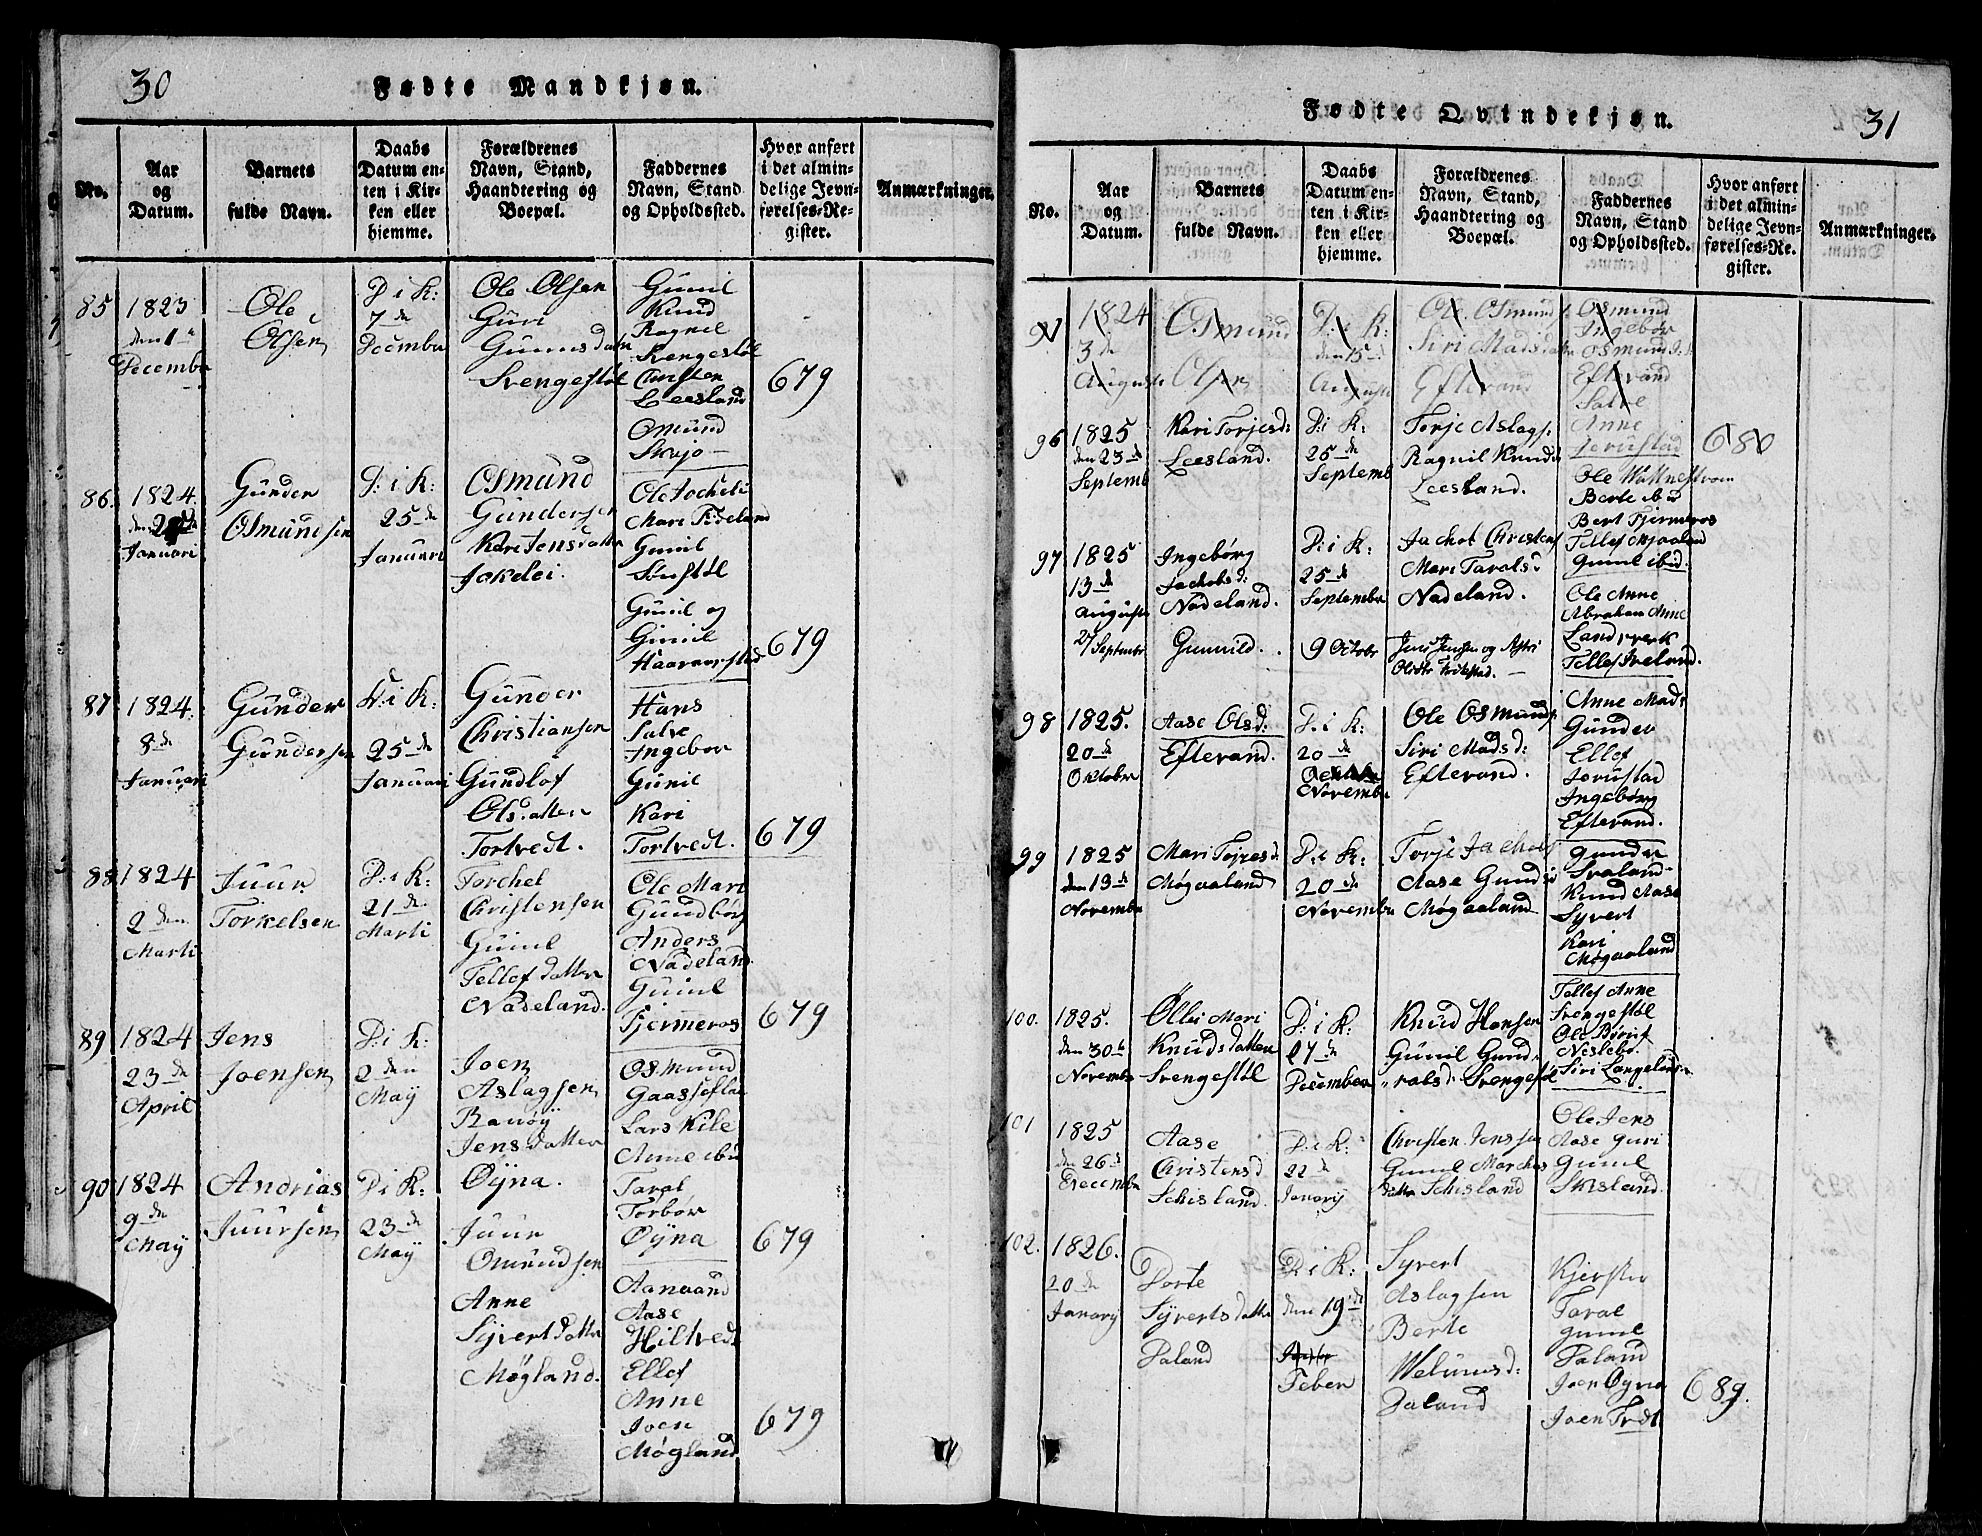 30
Fødte Mandkjøn.
No.
Aar
og
Datum.
Barnets
fulde Navn.
Daabs
Datum en-
ten i Kir-
ken eller
hjemme.
Forældrenes
Navn, Stand,
Haandtering og
Boepæl.
Faddernes
Navn, Stand
og Opholdssted.
Hvor anført
i det almin-
delige Jevn-
førelses-Re-
gister.
Anmærkninger.
85
1823
den 1te
Decembr
Ole
Olsen
D: i K:
7de
Decembr
Ole Olsen
Guri
Gunnsdatr
Svengestøl
Gunil
Knud
Ragnil
Svengestøl
Christen
Leesland
Omund
Skajo
679
86.
1824.
Januari
Gunder
Osmundsen
D: i K:
25de
Januari
Osmund
Gundersen
Kari Jensdatter
Jokelei.
Ole Jochelei
Mari Fideland
Gunil
Sønstøl
Gunil og
Gunil
Haaverstad
679
87
1824.
8de
Januari
Gunder
Gundersen
D: i K:
25de
Januari
Gunder
Christiansen
Gundlof
Olsdatter
Tortvedt.
Hans
Salve
Ingebor
Gunil
Kari
Tortvedt.
679
88
1824
2den
Marti
Juur
Torkelsen
D: i K:
21de
Marti
Torchel
Christensen
Gunil
Tellefdatter
Nadeland.
Ole Mari
Gundbør
Anders
Nadeland
Gunil
Fjermeros
679
89
1824
23de
April
Jens
Joensen
D: i K:
2den
May
Joen
Aslagsen
Ranøy
Jensdatter
Øyna.
Osmund
Gaaseflaa
Lars Kile
Anne ibid
Taral
Torbør
Øyna
679
90
1824
9de
May
Andrias
Juursen
D: i K:
23de
May
Juur
Omundsen
Anne
Syvertdatter
Møgland.
Aanaand
Aase
Hiltvedt
Ellef
Anne
Joen
Møgland
679
31
Fødte Qvindekjøn.
No.
Aar
og
Datum.
Barnets
fulde Navn.
Daabs
Datum en-
ten i Kir-
ken eller
hjemme.
Forældrenes
Navn, Stand,
Haandtering og
Boepæl.
Faddernes
Navn, Stand
og Opholdssted.
Hvor anført
i det almin-
delige Jevn-
førelses-Re-
gister.
Anmærkninger.
1824
3de
August
Osmund
Olsen
D: i K:
den 15de
August
Ole Osmunds.
Siri Madsdatter
Efterand
Osmund
Ingebor
Osmund
Efterand
Salve
Anne
Jorustad
96
1825
den 23de
Septemb
Kari Torjesd:
Leesland.
D: i K:
25de
Septemb
Torje Aslags:
Ragnil Knuds
Leesland.
Ole
Berte ibid
Bert Fjermeros
Gunil ibid.
680
97
1825
13de
August
Ingebørg
Jachobsd:
Nadeland.
D: i K:
25de
Septembr
Jachob Christens
Mari Taralsd
Nadeland.
Ole Anne
Abraham Anne
Landsverk
Tellef Iveland.
27 Septembr
Gunnild.
9 Octobr
Jens Jensen og
98
1825.
20de
Oktobr
Aase Olsd:
Efterand.
D: i K:
20de
Novembr
Ole Osmunds
Siri Madsd:
Efterand.
Anne Mads
Gunder
Ellef
Jorustad
Ingebørg
Efterand.
99
1825
den 13de
Novembr
Mari Torjesd
Møgaaland
D: i K:
20de
Novembr
Torje Jachobs
Aase Gunds
Møgaaland
Gunder
Svaland
Knud Aase
Syvert
Kari
Møgaaland
100.
1825.
den 30te
Novembr
Ølli Mari
Knudsdatter
Svengestøl
D: i K:
27de
December
Knud Hansen
Gunil Gund-
valsd: Svengestøl
Tellef Anne
Svengestøl
Ole Børuf
Neslebø.
Siri Langeland
101
1825
den 26de
Decembr
Aase
Christensd
Schisland.
D: i K:
22de
Janary
Christen Jenssen
Gunil Marches
datter Schisland
Ole Jens
Aase Guri
Gunil
Skisland.
102.
1826.
20de
Janary
Dorte
Syvertsdatter
Daland
D: i K:
den 19de
Feber
Syvert
Aslagsen
Berte
Welumsd:
Daland
Kjersten
Taral
Gunil
Daland
Joen Øyna
Joen
689.